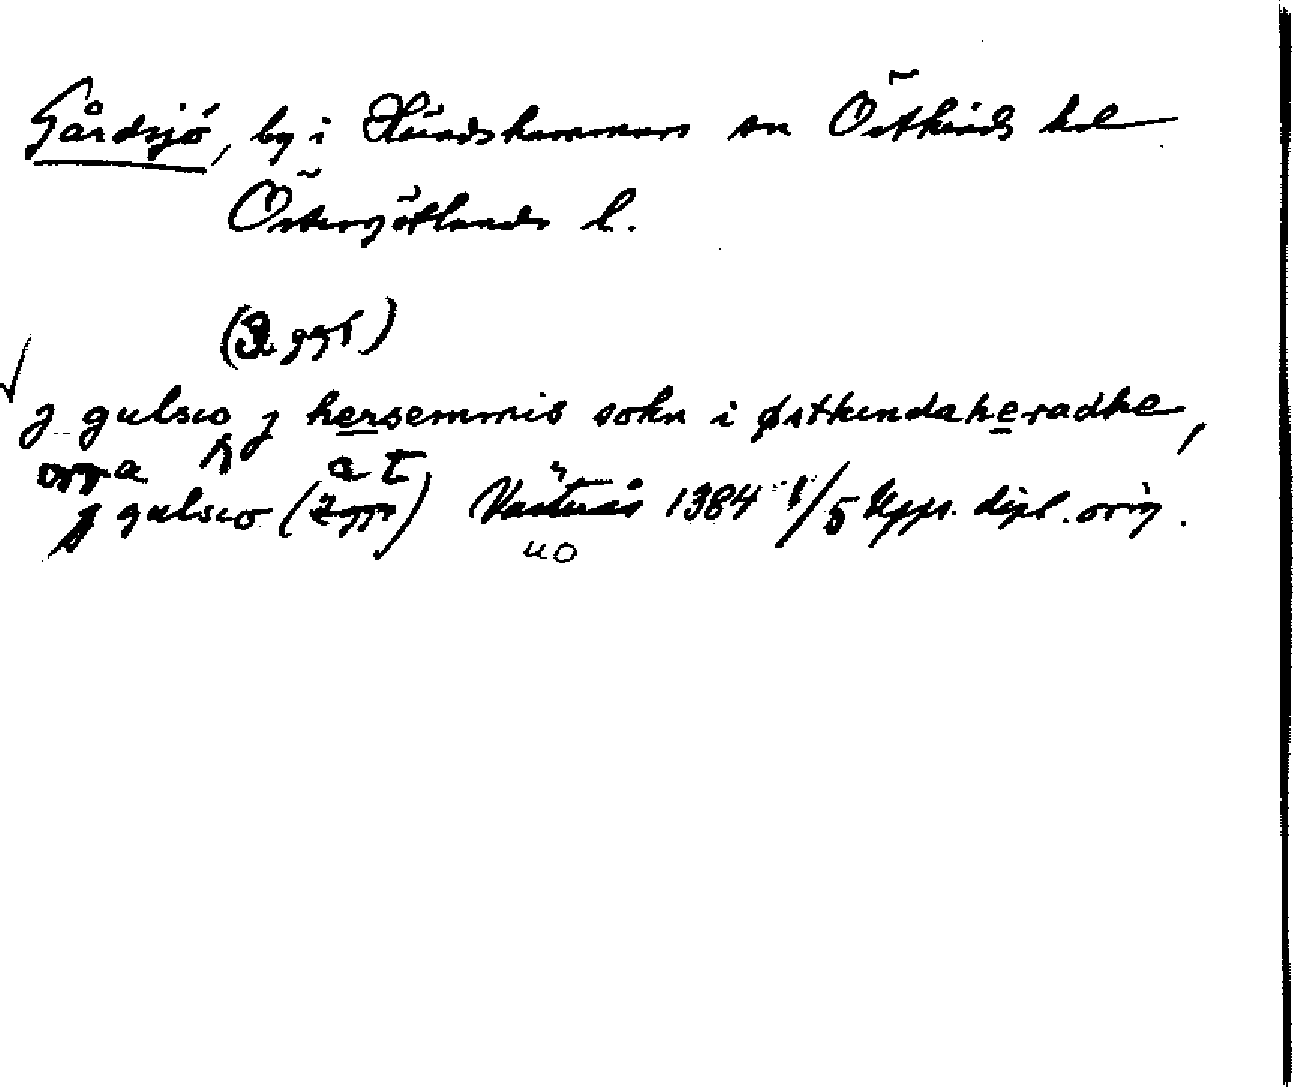 Gårdsjö, by i Häradshammars sn Östkinds hd
Östergötlands l.
(3 ggr)
j gulsio j hersemmis sokn i østkindaheradhe,
oppa a t
j gulsio (2 ggr) Västerås 1384 1/5 Upps. dipl. orig.
uo